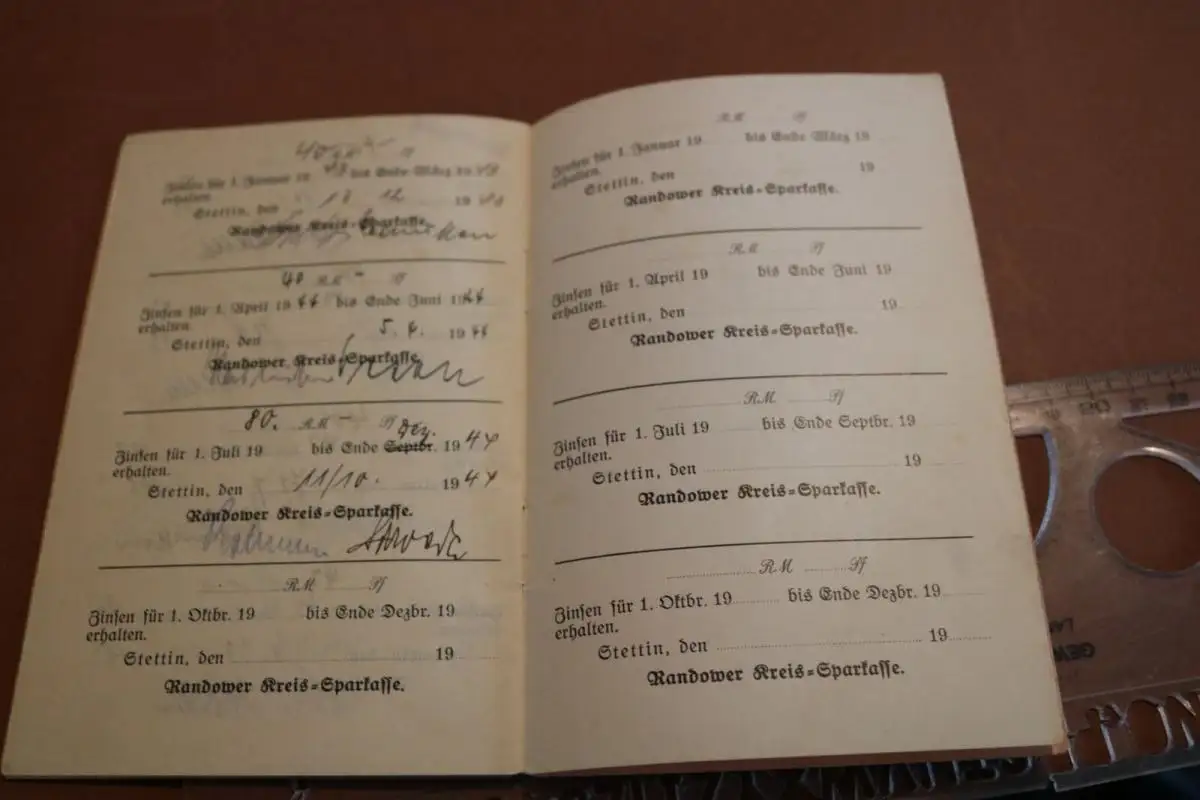 40 RM — Pf
Zinsen für 1. Januar 19 bis Ende März 19
erhalten.
Stettin, den 13 12 19
Randower Kreis=Sparkasse.
40 RM — Pf
Zinsen für 1. April 1944 bis Ende Juni 1944
erhalten.
Stettin, den 5. 4. 1944
Randower Kreis=Sparkasse.
80. RM — Pf
Dez.
Zinsen für 1. Juli 19 bis Ende Septbr. 1944
erhalten.
Stettin, den 11/10. 1944
Randower Kreis=Sparkasse.
RM Pf
Zinsen für 1. Oktbr. 19 bis Ende Dezbr. 19
erhalten.
Stettin, den 19
Randower Kreis=Sparkasse.
RM Pf
Zinsen für 1. Januar 19 bis Ende März 19
erhalten.
Stettin, den 19
Randower Kreis=Sparkasse.
RM Pf
Zinsen für 1. April 19 bis Ende Juni 19
erhalten.
Stettin, den 19
Randower Kreis=Sparkasse.
RM Pf
Zinsen für 1. Juli 19 bis Ende Septbr. 19
erhalten.
Stettin, den 19
Randower Kreis=Sparkasse.
RM Pf
Zinsen für 1. Oktbr. 19 bis Ende Dezbr. 19
erhalten.
Stettin, den 19
Randower Kreis=Sparkasse.